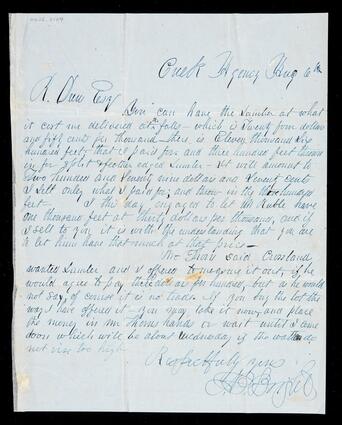 Creek Agency Aug 6th
R. Drew Esq
You can have the Lumber at what
it cost me delivered at falls - which is Twenty four dollars
and fifty cents per thousand - there is Eleven thousand Six
hundred feet, that I paid for and three hundred feet thrown
in for split & defective edged Lumber - It will amount to
Two hundred and Seventy nine dollars and Seventy cents
I sell only what I paid for, and throw in the three hundred
feet - I this day engaged to let Mr Ruble have
one thousand feet at thirty dollars per thousand, and if
I sell to you it is with the understanding that you are
to let him have that much at that price -
Mr Thorn said
wanted Lumber and I offered to it out, if he
would agree to pay three dollars per hundred, but as he would
not say, of course it is no trade. If you buy the lot this
way I have offered it - you may take it now, and place
the money in Mr Thorns hands or wait until I come
down which will be about Wednesday if the water do
not rise too high
Respectfully yours